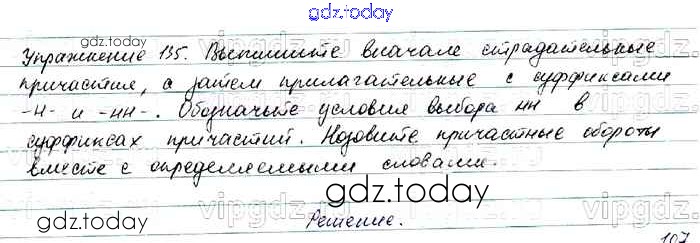 gdz.today
gdz.today
Упражнение 135. Выпишите вначале страдательные
причастия, а затем прилагательные с суффиксами
-н- и -нн-. Обозначьте условия выбора нн в
суффиксах причастий. Назовите причастные обороты
вместе с определяемыми словами.
gdz.today
gdz.today
Решение.
107